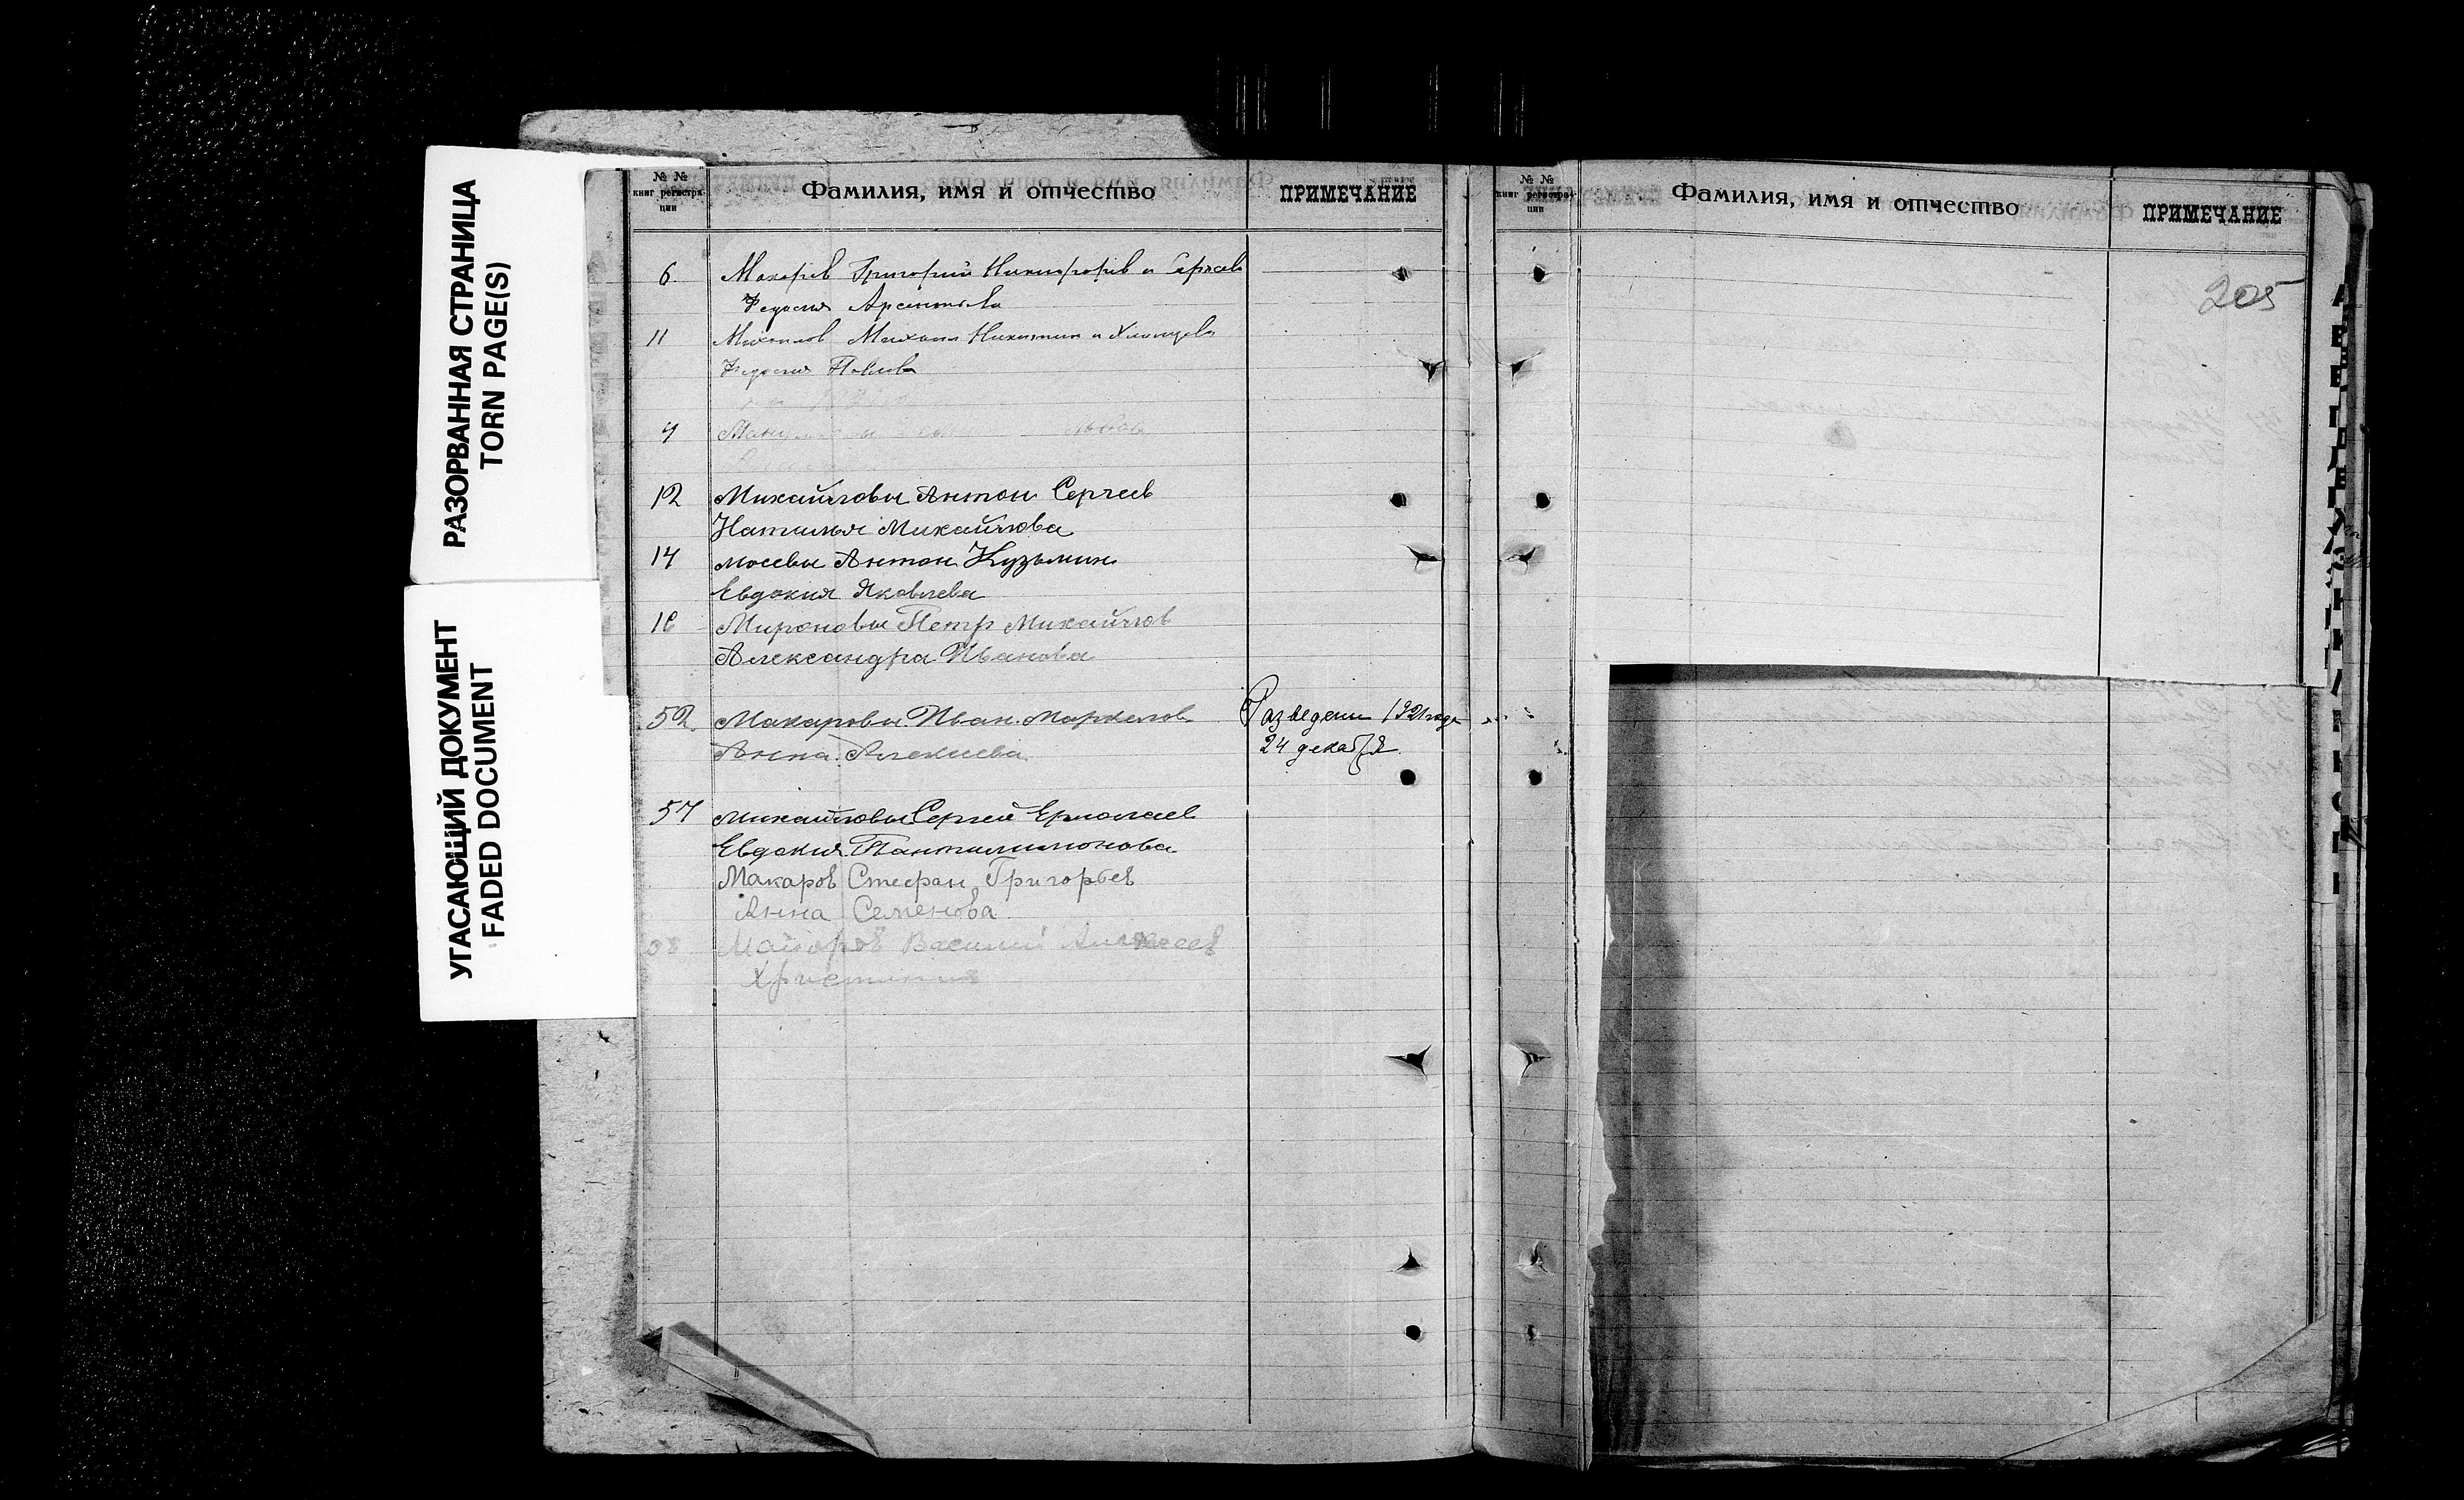 РАЗОРВАННАЯ СТРАНИЦА
TORN PAGE(S)
УГАСАЮЩИЙ ДОКУМЕНТ
FADED DOCUMENT
№ № книг регистра-ции
Фамилия, имя и отчество
ПРИМЕЧАНИЕ
6. Макаров Григорий Никифоров и
Федосия Арсентьева
11 Михаилов Михаил Никитин и
Федосия Павлова
9
12 Михайловы Антон Сергеев
Наталья Михайлова
14 Мосевы Антон Кузьмин
Евдокия Яковлева
Мироновы Петр Михайлов
Александра Иванова
52. Макаровы Иван Маркелов Разведены 1921 года
Анна Алексеева 24 декабря
57 Михайловы Сергей Ермолаев
Евдокия Пантилимонова
Макаров Стефан Григорьев
Анна Семенова
Майоров Василий Алексеев
Христиния
№ № книг регистра-ции
Фамилия, имя и отчество
ПРИМЕЧАНИЕ
205